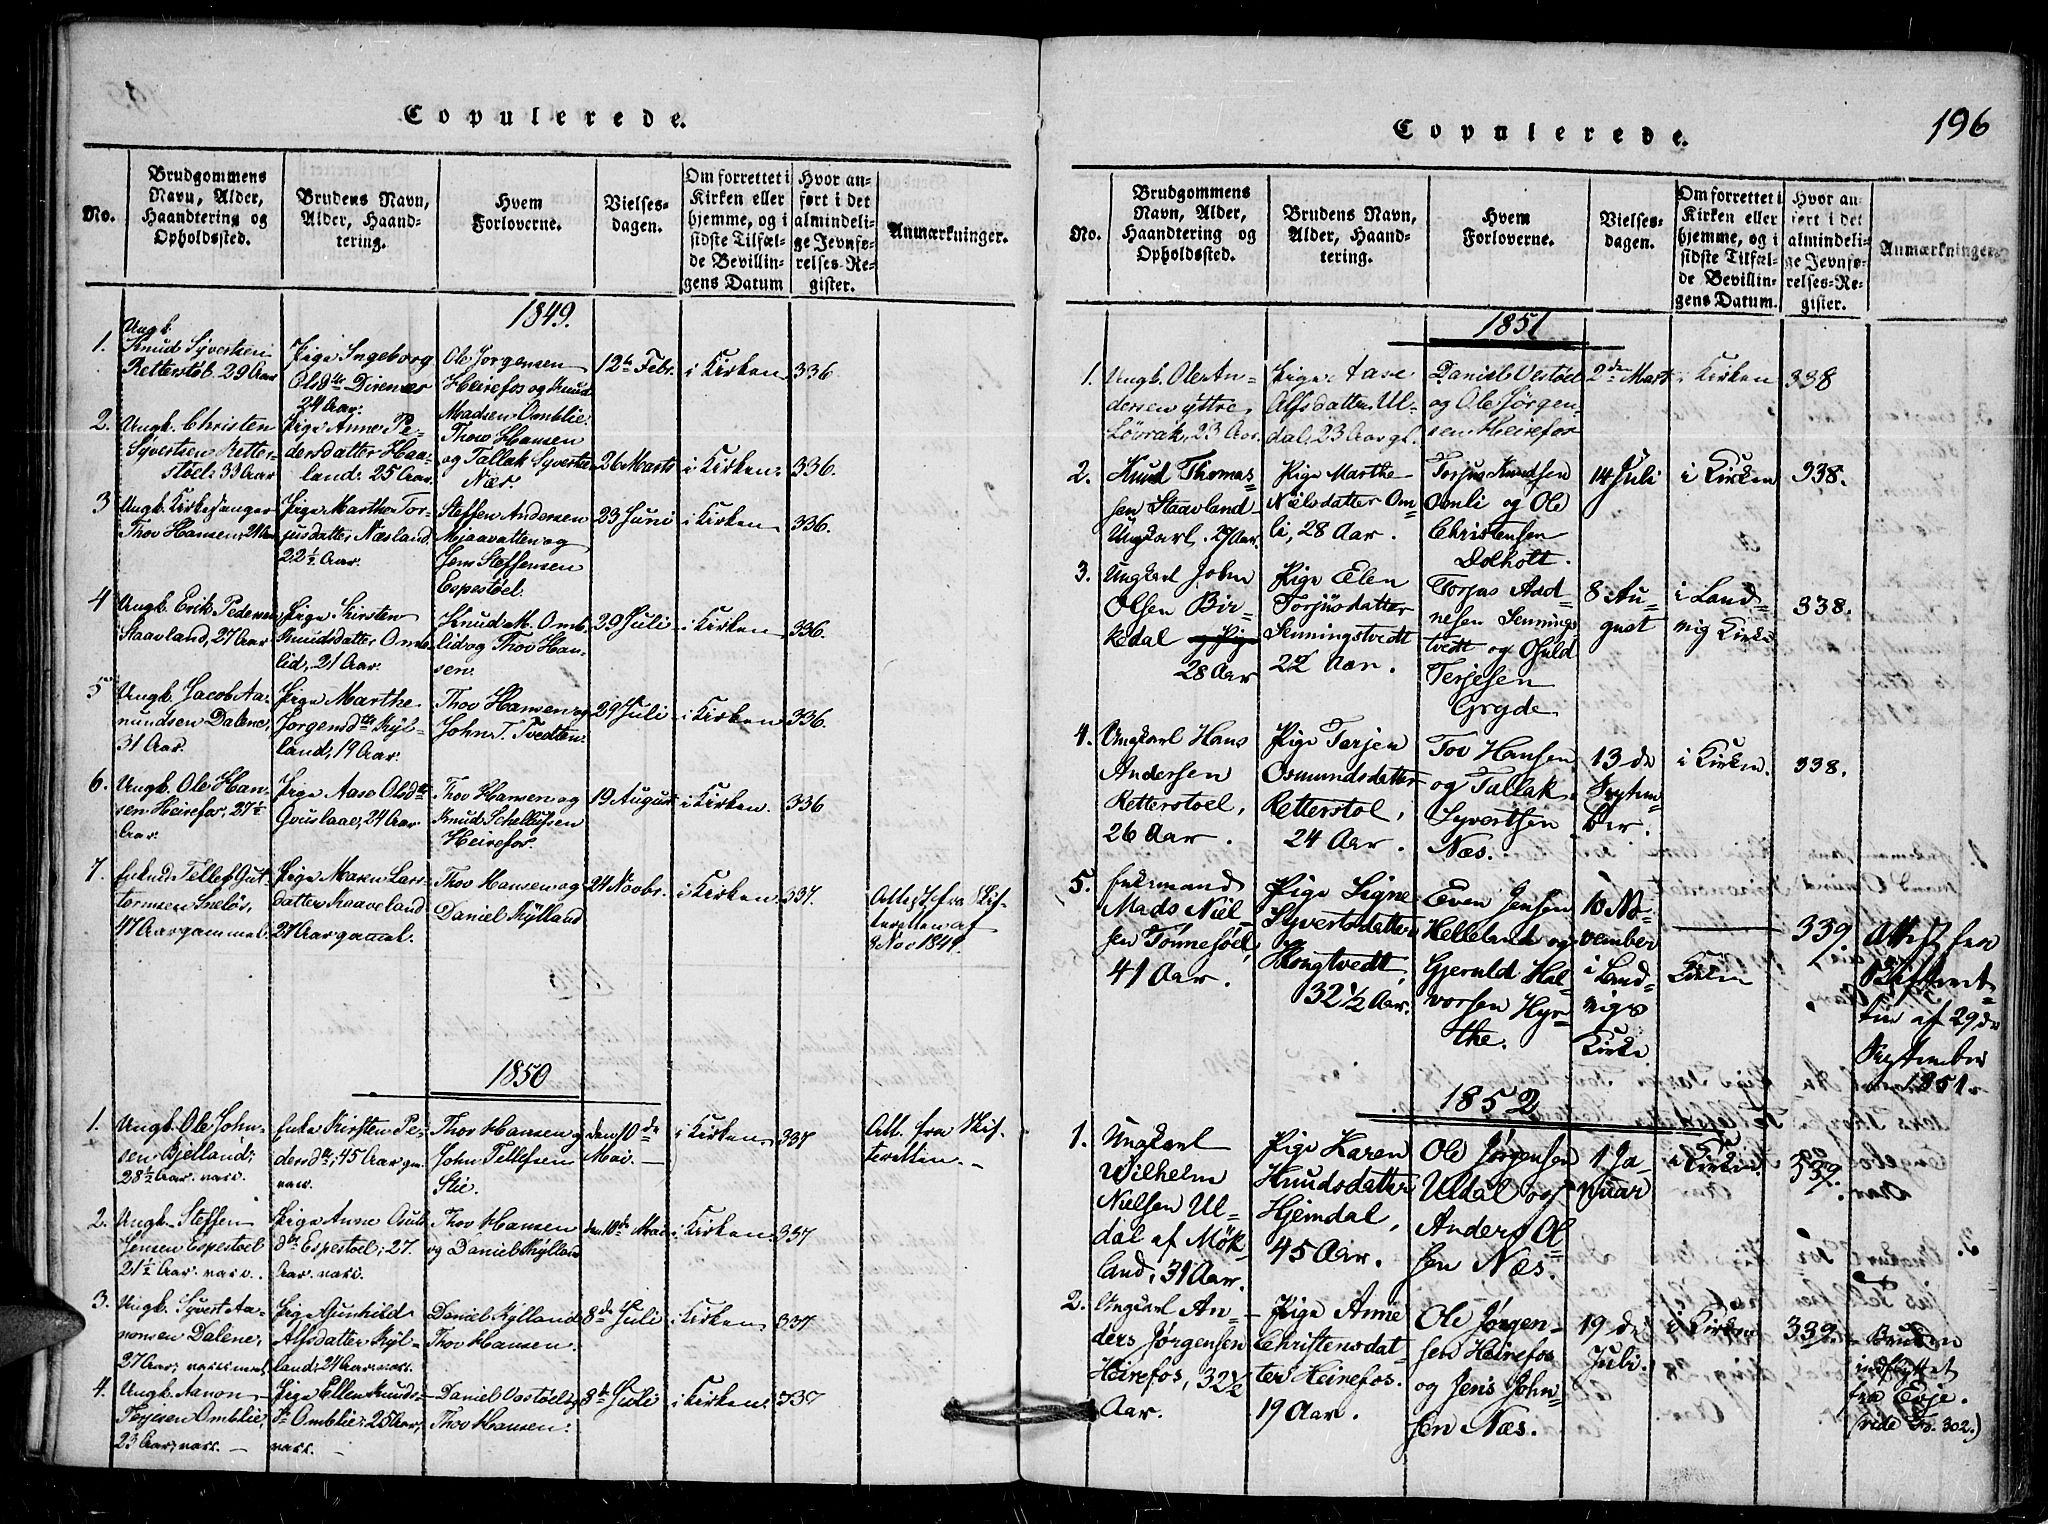 Copulerede.
No.
Brudgommens
Navn, Alder,
Haandtering og
Opholdssted.
Brudens Navn,
Alder, Haand-
tering.
Hvem
Forloverne.
Vielses-
dagen.
Om forrettet i
Kirken eller
hjemme, og i
sidste Tilfæl-
de Bevillin-
gens Datum
Hvor an-
ført i det
almindeli-
ge Jevnfø-
relses-Re-
gister.
Anmærkninger.
1849.
1.
Ungk.
Knud Syvertsen
Retterstöl. 29 Aar
Pige Ingeborg
Olsdtr Direnæs
24 Aar.
Ole Jörgensen
Heirefos og Knud
Madsen Omblie.
12te Febr.
i Kirken
336
2.
Ungk. Christen
Syvertsen Retter-
stoel. 33 Aar
Pige Anne Pe-
dersdatter Haa-
land. 25 Aar.
Thov Hansen
og Tallak Syvertsen
Næs.
26 Marts
i Kirken.
336.
3
Ungk. Kirkesanger
Thov Hansen, 21 Aar
Pige Marthe Tor-
jusdatter Næsland
22½ Aar.
Steffen Andersen
Mjaavatten og
Jens Steffensen
Espestöel.
23 Juni
i Kirken
336.
4
Ungk. Erik Pedersen
Staavland, 27 Aar
Pige Kirsten
Knudsdatter Omb-
lid, 21 Aar.
Knud M. Omb-
lid og Thov Han-
sen.
29 Juli
i Kirken
336.
5
Ungk. Jacob Aa-
nundsen Dalene,
31 Aar.
Pige Marthe
Jörgensdtr Kyl-
land, 19 Aar.
Thov Hansen og
John T. Tvedten.
29 Juli
i Kirken
336.
6.
Ungk. Ole Han-
sen Heirefos, 27½
Aar.
Pige Aase Olsdtr
24 Aar
Thov Hansen og
Knud Schellufsen
Heirefos.
19 August
i Kirken.
336
7.
Enkmd Tellef Gut-
tormsen Sneløs,
47 Aar gammel.
Pige Maren Lars-
datter Kaaveland
27 Aar gamel.
Thov Hansen og
Daniel Kylland
24 Novbr.
i Kirken
337.
Attest fra Skif-
teretten af
Nov 1849.
1850
1.
Ungk. Ole John-
sen Bjelland;
28½ Aar. vacc.
Enke Kirsten Pe-
dersdtr, 45 Aar gm.
vacc.
Thov Hansen og
John Tellefsen
Stie.
den 10de
Mai.
i Kirken
337
Att. fra Skif-
teretten.
2.
Ungk. Steffen
Jensen Espestoel
21½ Aar. vacc.
Pige Anne
dtr Espestoel; 27.
Aar. vacc.
Thov Hansen
og Daniel Kylland
den 10de Mai
i Kirken.
337
3.
Ungk. Syvert Aa-
nonsen Dalene,
27 Aar, vaccineret
Pige Gunhild
Alfsdatter Kyl-
land; 24 Aar. vacc.
Daniel Kylland
Thov Hansen.
8de Juli
i Kirken
337
4.
Ungk. Aanon
Terjesen Omblie,
23 Aar, vacc.
Pige Ellen Knuds-
dr Omblie; 25 Aar,
vacc.
Daniel Vestöl og
Thov Hansen.
8de Juli
i Kirken.
337
Copulerede.
196
No.
Brudgommens
Navn, Alder,
Haandtering og
Opholdssted.
Brudens Navn,
Alder, Haand-
tering.
Hvem
Forloverne.
Vielses-
dagen.
Om forrettet i
Kirken eller
hjemme, og i
sidste Tilfæl-
de Bevillin-
gens Datum.
Hvor an-
ført i det
almindeli-
ge Jevnfø-
relses-Re-
gister.
Anmærkninger.
1851
1.
Ungk. Ole An-
dersen yttre
Lövrak, 23 Aar.
Pige Aase
Alfsdatter Ul-
dal, 23 Aar gl.
Daniel Vestöel
og Ole Jörgen-
sen Heirefos
2den Mart
i Kirken
338
2.
Knud Thomas-
sen Staavland
Ungkarl. 27 Aar.
Pige Marthe
Nielsdatter Om-
li, 28 Aar.
Torjus Knudsen
Omli og Ole
Christensen
Dolholt.
14 Juli
i Kirken
338.
3.
Ungkarl John
Olsen Bir-
kedal
28 Aar
Pige Elen
Torjusdatter
Senningstvedt
22 Aar.
Torjus Aad-
nesen Sennings-
tvedt og Osuld
Terjesen
Gryde
8 Au-
gust
i Land-
vig Kirke
338.
4.
Ungkarl Hans
Andersen
Retterstoel,
26 Aar.
Pige Torjer
Osmundsdatter
Retterstol,
24 Aar.
Tov Hansen
og Tallak
Syvertsen
Næs.
13 de
Septem-
ber.
i Kirken.
338.
5.
Enkemand
Mads Niel-
sen Tönnesöl,
41 Aar.
Pige Signe
Syvertsdatter
Hongtvedt,
32½ Aar.
Even Jensen
Helleland og
Gjeruld Hal-
vorsen Hyr-
the.
10 No-
vember
i Land-
vigs
Kirke
339.
Attest fra
Skifteret-
ten af 29de
September
1851.
1852
1.
Ungkarl
Wilhelm
Nielsen Ul-
dal af Møk-
land, 31 Aar.
Pige Karen
Knudsdatter
Hjemdal,
45 Aar.
Ole Jørgensen
Uldal og
Anders Ol-
sen Næs.
1 Ja-
nuar
i Kirken.
339.
2.
Ungkarl An-
ders Jørgensen
Heirefos, 32½
Aar.
Pige Anne
Christensdat-
ter Heirefos.
19 Aar.
Ole Jørgen-
sen Heirefos
og Jens John-
sen Næs.
19 de
Juli.
i Kirken
339.
Bruden
indflyttet
fra Evje.
(vide Fr. 302.)